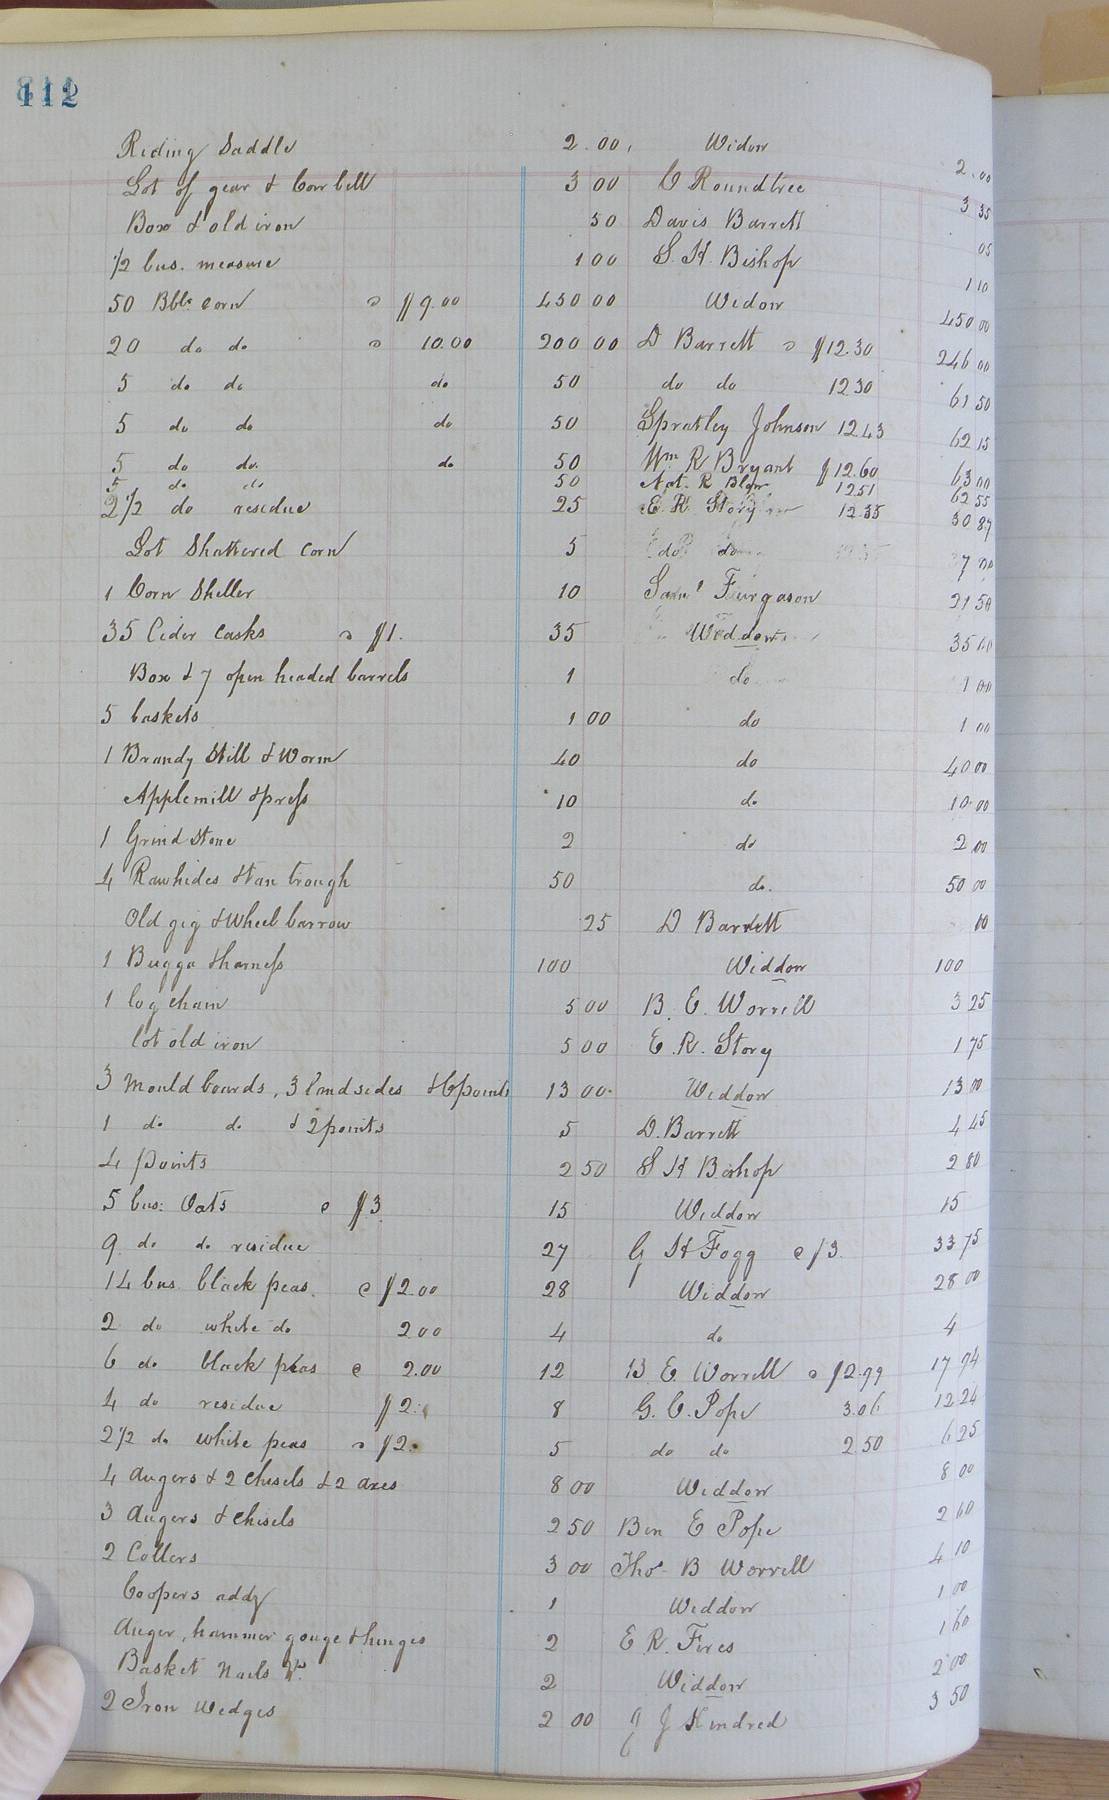 112
Riding Saddle 2.00 Widow 2.00
Lot of gear & Cow bell 3 00 C Roundtree 3 35
Box & old iron 50 Davis Barrett 05
1/2 bus. measure 1 00 S. H. Bishop 1 10
50 Bbls corn @ $9.00 450 00 Widow 450 00
20 do do @ 10.00 200 00 D Barrett @ $12.30 246 00
5 do do do 50 do do 12 30 61 50
5 do do do 50 Spratley Johnson 12 43 62 15
5 do do. do 50 Wm R Bryant $12.60 63 00
5 do do 50 Nat. R 12 51 62 55
2 1/2 do residue 25 E. R. Story 12.35 30 87
Lot Shattered corn 5 do do
1 Corn Sheller 10 Saml Furgason 21 50
35 Cider casks @ $1. 35 Widdow 35 00
Box & 7 open headed barrels 1 do 1 00
5 baskets 1 00 do 1 00
1 Brandy Still & Worm 40 do 40 00
Applemill & press 10 do 10.00
1 Grind Stone 2 do 2 00
4 Rawhides & tan trough 50 do. 50 00
Old gig & wheel barrow 25 D Barrett 10
1 Bugga & harness 100 Widdow 100
1 log chain 5 00 B. E. Worrell 3 25
lot old iron 5 00 E. R. Story 1 75
3 Mould boards, 3 landsides & 6 points 13 00. Widdow 13 00
1 do do & 2 points 5 D. Barrett 4 45
4 points 2 50 S H Bishop 2 80
5 bus: Oats @ $3 15 Widdow 15
9 do do residue 27 G H Fogg @ $3. 33 75
14 bus black peas. @ $2.00 28 Widdow 28 00
2 do white do 2 00 4 do 4
6 do black peas @ 2.00 12 B E Worrell @ $2.99 17 94
4 do residue $2. 8 G. C. Pope 3.06 12 24
2 1/2 do white peas @ $2. 5 do do 2.50 6 25
4 augers & 2 chisels & 2 axes 8 00 Widdow 8 00
3 Augers & chisels 2 50 Ben E Pope 2 60
2 Collers 3 00 Tho. B Worrell 4 10
Coopers addz 1 Widdow 1 00
Auger, hammer gouge & hinges 2 E R. Fires 1 60
Basket Nails &c. 2 Widdow 2 00
2 Iron Wedges 2 00 J J Kindred 3 50